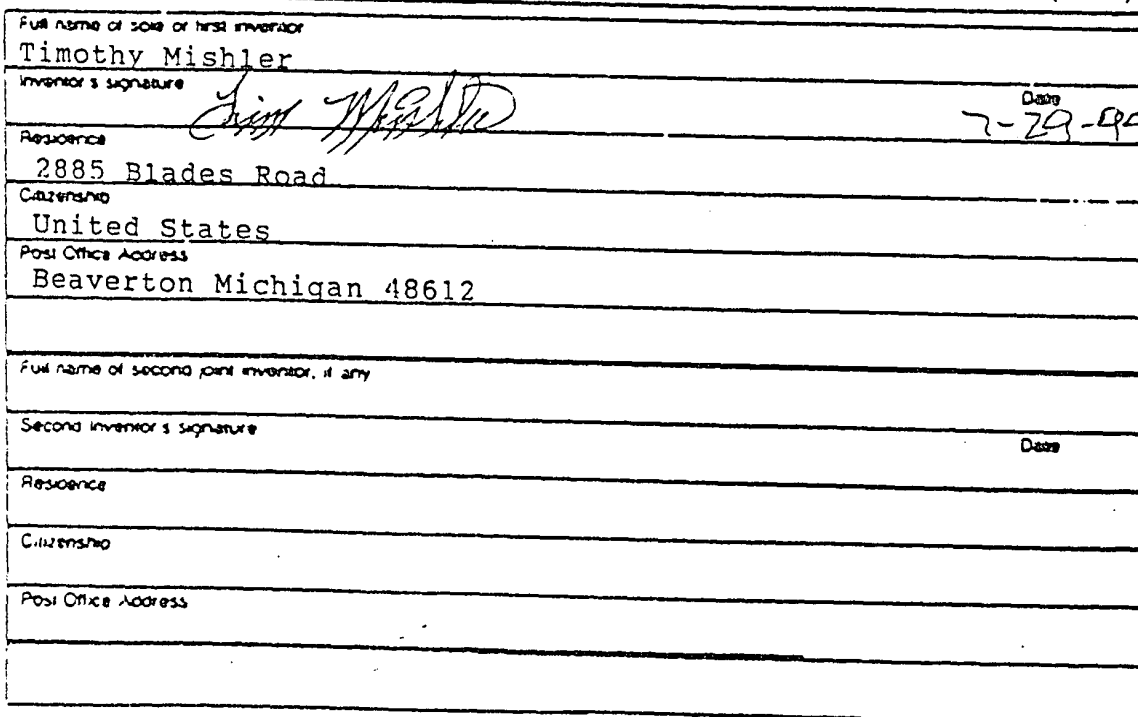 Full name of sole or first inventor
Timothy Mishler
Inventor's signature
Tim Mishler
Date
7-29-99
Residence
2885 Blades Road
Citizenship
United States
Post Office Address
Beaverton Michigan 48612
Full name of second joint inventor, if any
Second inventor's signature
Date
Residence
Citizenship
Post Office Address